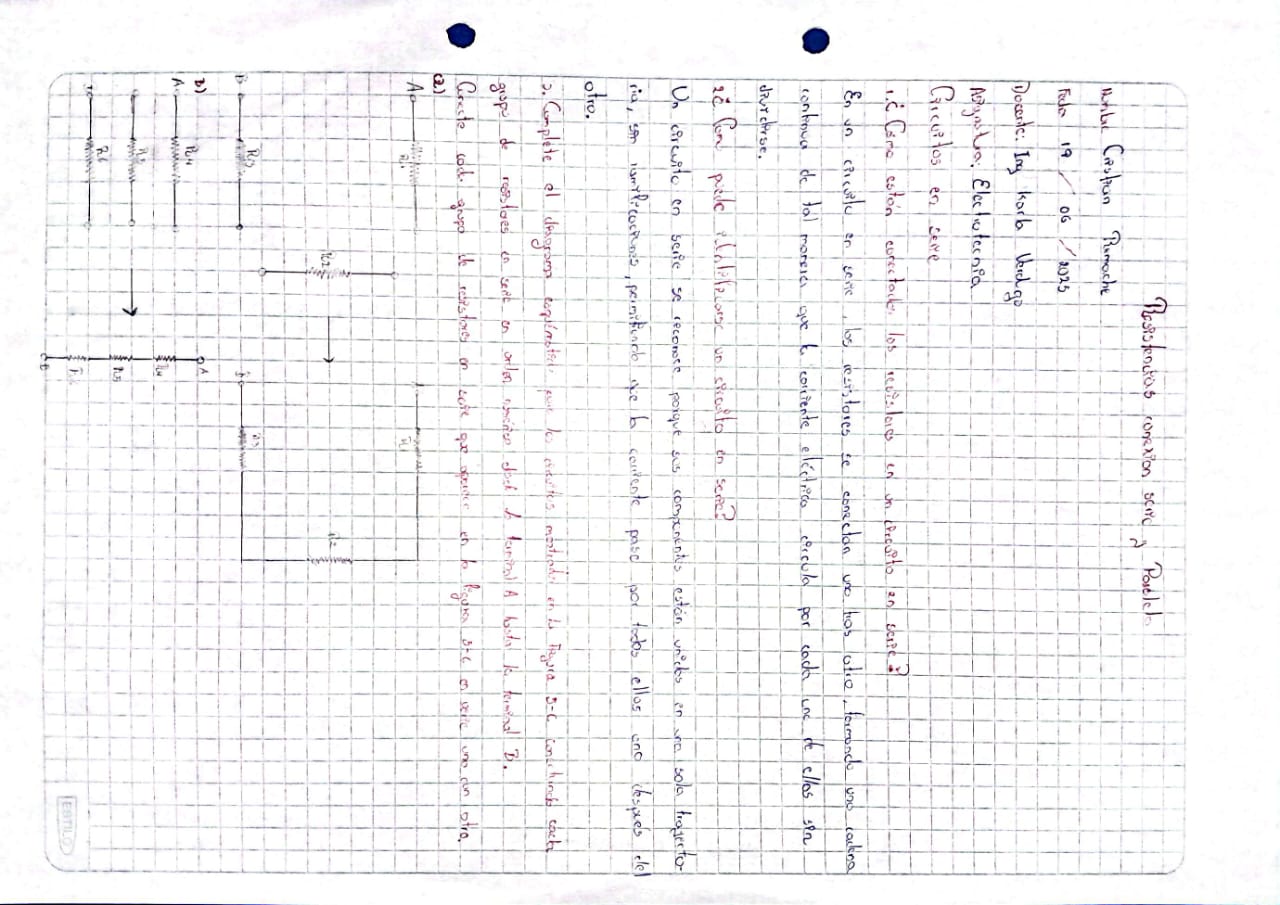 Resistencias conexion serie y Paralelo
Nombre Cristian Rumache
Fecha 19 / 06 / 2025
Docente: Ing Karla Verdugo
Asignatura: Electrotecnia
Circuitos en serie
1.¿Cómo están conectados los resistores en un circuito en serie?
En un circuito en serie, los resistores se conectan uno tras otro, formando una cadena
continua de tal manera que la corriente eléctrica circula por cada una de ellas sin
dividirse.
2¿ puede identificarse un circuito en serie?
Un circuito en serie se reconoce porque sus componentes están unidos en una sola trayecto-
ria, sin ramificaciones, permitiendo que la corriente pase por todos ellos uno después del
otro.
3. Complete el diagrama esquemático para los circuitos mostrados en la figura 5-6 conectando cada
grupo de resistores en serie en orden desde la terminal A hasta la terminal B.
Conecte cada grupo de resistores en serie que aparecen en la figura 5-6 en serie uno con otro.
a)
A R1
R2
B R3
A R1
R2
B R3
b)
A R4
R5
B R6
A
R4
R5
R6
B
ESTILO